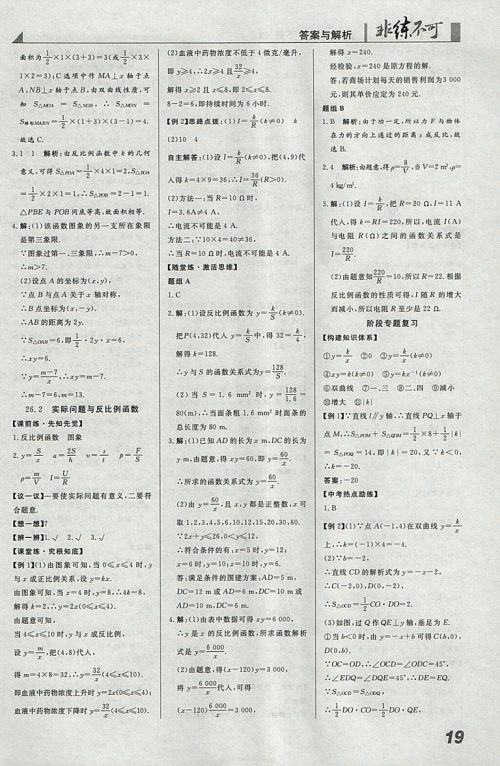 答案与解析
非练不可
面积为½×1×(3+3)=3(或½×3×
1×2=3);C选项中作MA⊥x轴于点
A,NB⊥x轴于点B,由双曲线性质,可
知S△MOA=S△NOB,∴S△MON=
S梯形MABN=½×(1+3)×(3-1)=4.
故选C.
3.1 1 解析:由反比例函数中k的几何
意义,可得S△POA=½×4×1=2,S△BOA
=½×2×1=1,∴S△POB=2-1=1.
△PBE与POB同底等高,故面积相等.
4.解:(1)该函数图象的另一支所在象限
是第三象限.
∵图象过第一、三象限,∴m-7>0,
∴m>7.
(2)设点A的坐标为(x,y),
∵点B与点A关于x轴对称,
∴B点坐标为(x,-y).
∴AB的距离为2y.
∵S△OAB=6,即½·2y·x=6.
∴xy=6.
∵y=(m-7)/x,∴xy=m-7.
∴m-7=6,∴m=13.
26.2 实际问题与反比例函数
【课前练·先知先觉】
1.反比例函数 图象
2.y=S/x a=2S/h v=s/t p=F/S
ρ=m/V I=U/R
【议一议】一要使实际问题有意义,二要符
合题意.
【想一想】7
【辨一辨】1.✓ 2.✓ 3.✓
【课堂练·究根知底】
【例1】(1)由图象可知,当0≤x≤4时,y
与x成正比例函数,设y=kx.
由图象可知,当x=4时,y=8,∴4k=8,
解得k=2,∴y=2x(0≤x≤4).
由题意可知,
当4≤x≤10时,y与x成反比例,
设y=m/x,把(4,8)代入,
得m=4×8=32,∴y=32/x(4≤x≤10).
即血液中药物浓度上升时y=2x(0≤x≤4);
血液中药物浓度下降时y=32/x(4≤x≤10).
(2)血液中药物浓度不低于4微克/毫升,
即y≥4,∴2x≥4且32/x≥4,
解得x≥2且x≤8,即2≤x≤8.
8-2=6,即持续时间为6小时.
【例2】思路点拨:(1)I=k/R(k≠0)
(2)10 4
自主解答:(1)设I=k/R(k≠0),把(4,9)代
入得k=4×9=36,∴I=36/R(R>0).
(2)方法一:当R=10Ω时,
I=3.6A≠4A,
∴电流不可能是4A.
方法二:∵10×4=40≠36,
∴当R=10Ω时,电流不可能是4A.
【随堂练·激活思维】
题组A
1.C
2.解:(1)设反比例函数为y=k/S(k≠0).
把P(4,32)代入y=k/S中,得32=k/4,
解得k=128.
∴y与S的函数关系式为y=128/S.
(2)当S=1.6mm²时,y=128/1.6=
80(m),∴当面条粗1.6mm²时面条的
总长度为80m.
3.解:(1)已知AD的长为xm,DC的长为
ym,由题意,得xy=60,即y=60/x.
∴所求的函数关系式为y=60/x.
(2)由y=60/x,且x,y都是正整数,x可
取1,2,3,4,5,6,10,12,15,20,30,60.
∵2x+y≤26,0<y≤12,
∴符合条件的有:x=5时,y=12;
x=6时,y=10;x=10时,y=6.
答:满足条件的围建方案,AD=5m,
DC=12m或AD=6m,DC=10m或
AD=10m,DC=6m.
4.解:(1)由表中数据可得xy=6000,
∴y是x的反比例函数,所求函数解析
式是y=6000/x.
(2)由题意,得(x-120)y=3000,
将y=6000/x代入,可得
(x-120)·6000/x=3000,
解得x=240.
经检验,x=240是原方程的解.
答:若商场计划每天的销售利润为3000
元,则其单价应定为240元.
题组B
1.B 解析:由于功一定,所以力F与物体
在力的方向上通过的距离s成反比,故
选B.
2.4 解析:由题意,得ρ=8/V,当V=2m³,ρ=
4kg/m³.
3.解:(1)设I=k/R,把R=20Ω,I=11A
代入,得k=RI=220,所以,电流I(A)
与电阻R(Ω)之间的函数关系式是
I=220/R.
(2)由题意知220/R=10,所以R=22.根据
反比例函数的性质可得,I随R的增大
而减小,所以电阻至少是22Ω.
阶段专题复习
【构建知识体系】
①y=k/x ②0 ③y=k/x(k≠0)
④xy=k(k≠0) ⑤y=kx⁻¹(k≠0)
⑥双曲线 ⑦一、三 ⑧二、四 ⑨减小
⑩增大 ⑪|k|
【例1】∵直线l∥y轴,∴直线PQ⊥x轴于
点M,∴S△POM+S△QOM=½×8+½|k|
=S△POQ=14,即|k|=20,又∵k<0,
∴k=-20.
答案:-20
【中考热点励练】
1.B
【例2】(1)∵点A(-1,4)在双曲线y=k/x
上,∴k=(-1)×4=-4.
(2)∵b=-2,
∴直线CD的解析式为y=-x-2,
∴C(-2,0),D(0,-2),
∴S△OCD=½CO·DO=2.
(3)如图,过Q作QE⊥y轴,垂足为E.
①当b<0时,由y=-x+b可得C(b,0),
D(0,b).
∵OC=OD,∴∠OCD=∠ODC=45°,
∴∠EDQ=∠DQE=45°,∴DE=EQ.
∵S△OCD=S△ODQ,
∴½DO·CO=½DO·EQ,∴CO=EQ.
19